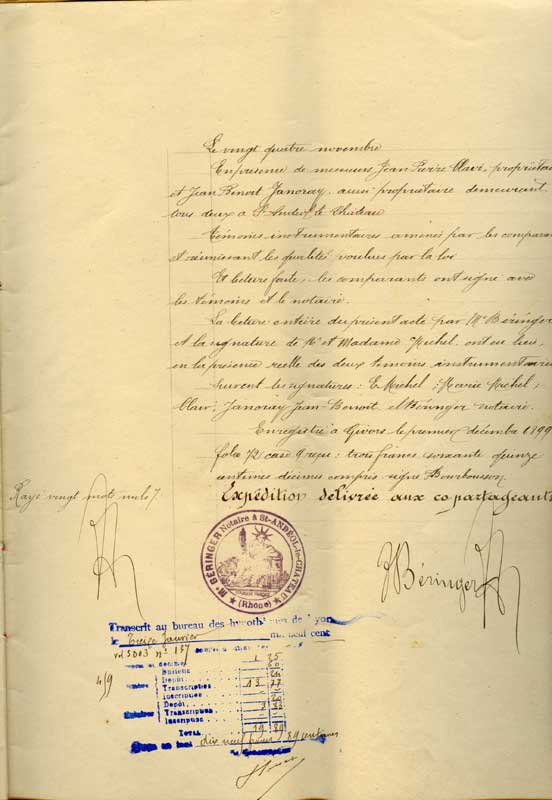 Le vingt quatre novembre
En présence de messieurs Jean Pierre Clari, propriétai
et Jean Benoit Janoray, aussi propriétaire demeurant
tous deux à St Andéol le Château
témoins instrumentaires amenés par les comparan
et réunissant les qualités voulues par la loi
Et lecture faite, les comparants ont signé avec
les témoins et le notaire.
La lecture entière du présent acte par Me Béringer
et la signature de Mr et Madame Michel ont eu lieu,
en la présence réelle des deux témoins instrumentaires
Suivent les signatures: E. Michel; Marie Michel;
Janoray Jean-Benoit et Béringer notaire.
Enregistré à Givors le premier décembre 1899
folio 72 case 9 reçu: trois francs soixante quinze
centimes décimes compris signé Bourbousson.
Rayé vingt mots nuls
Expédition délivrée aux copartageants
Me BÉRINGER Notaire à St-ANDÉOL-le-CHATEAU
(Rhône)
Béringer
Transcrit au bureau des hypothèques de Lyon
le Treize Janvier mil neuf cent
vol 3003 n° 137
4/9
Bulletin
Dépôt
Transcription 13 77
Inscription
Dépôt
Transcription
Inscription
TOTAL 19 89
dix neuf francs 89 centimes